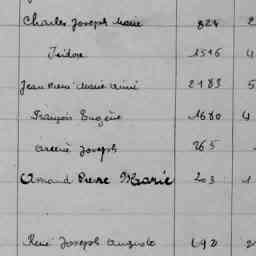 Charles Joseph Marie 824 2
Isidore 1516 4
Jean Pierre Marie Aimé 2183 5
François Eugène 1680 4
Arsène Joseph 265
Armand Pierre Marie 203 1
René Joseph Auguste 692 2